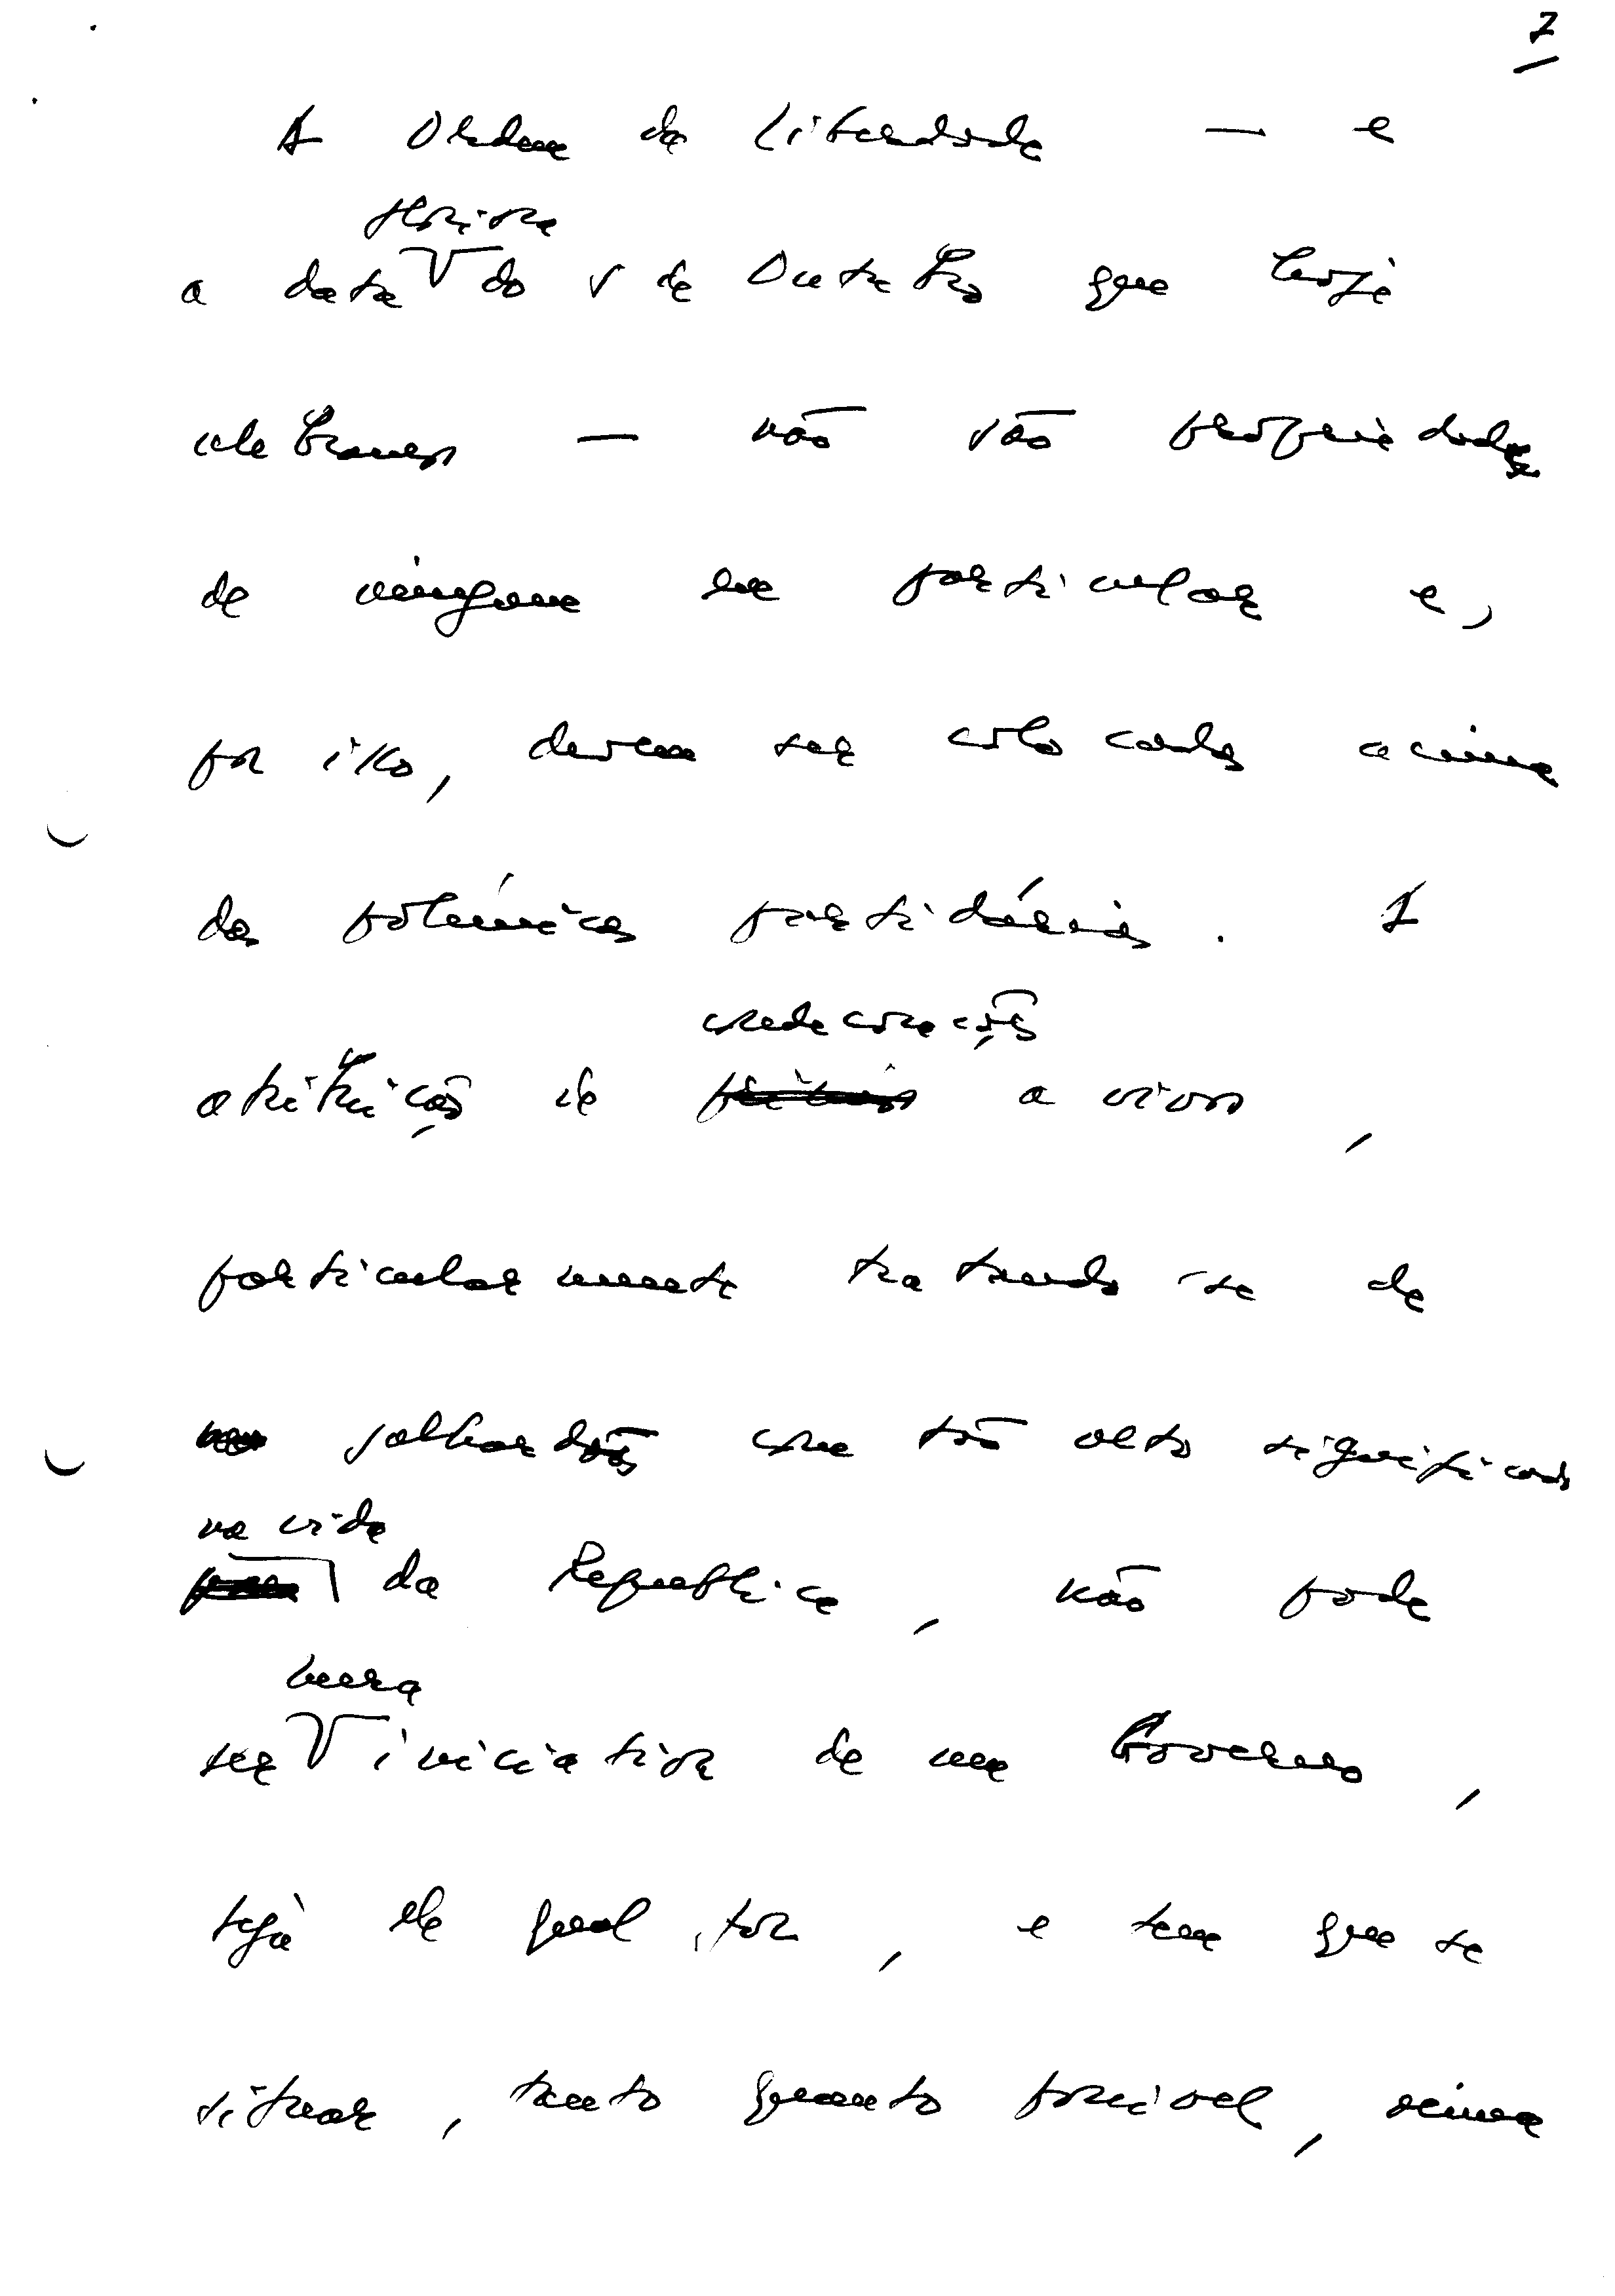 7
A Ordem da Liberdade — e
gloriosa
a data do 5 de Outubro que hoje
celebramos — não são propriedade
de ninguém em particular e,
por isso, devem ser colocadas acima
das polémicas partidárias. A
condecorações
atribuição de a vivos,
particularmente tratando-se de
galhardões com tão alto significado
na vida
da República, não pode
mera
ser iniciativa de um Governo,
seja ele qual for, e tem que se
situar, tanto quanto possível, acima